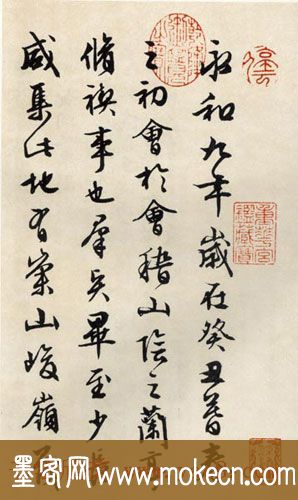 永和九年歲在癸丑暮春
之初會於會稽山陰之蘭亭
脩禊事也羣賢畢至少長
咸集此地有崇山峻嶺
重華宮鑑藏寶
墨客网 www.mokecn.com